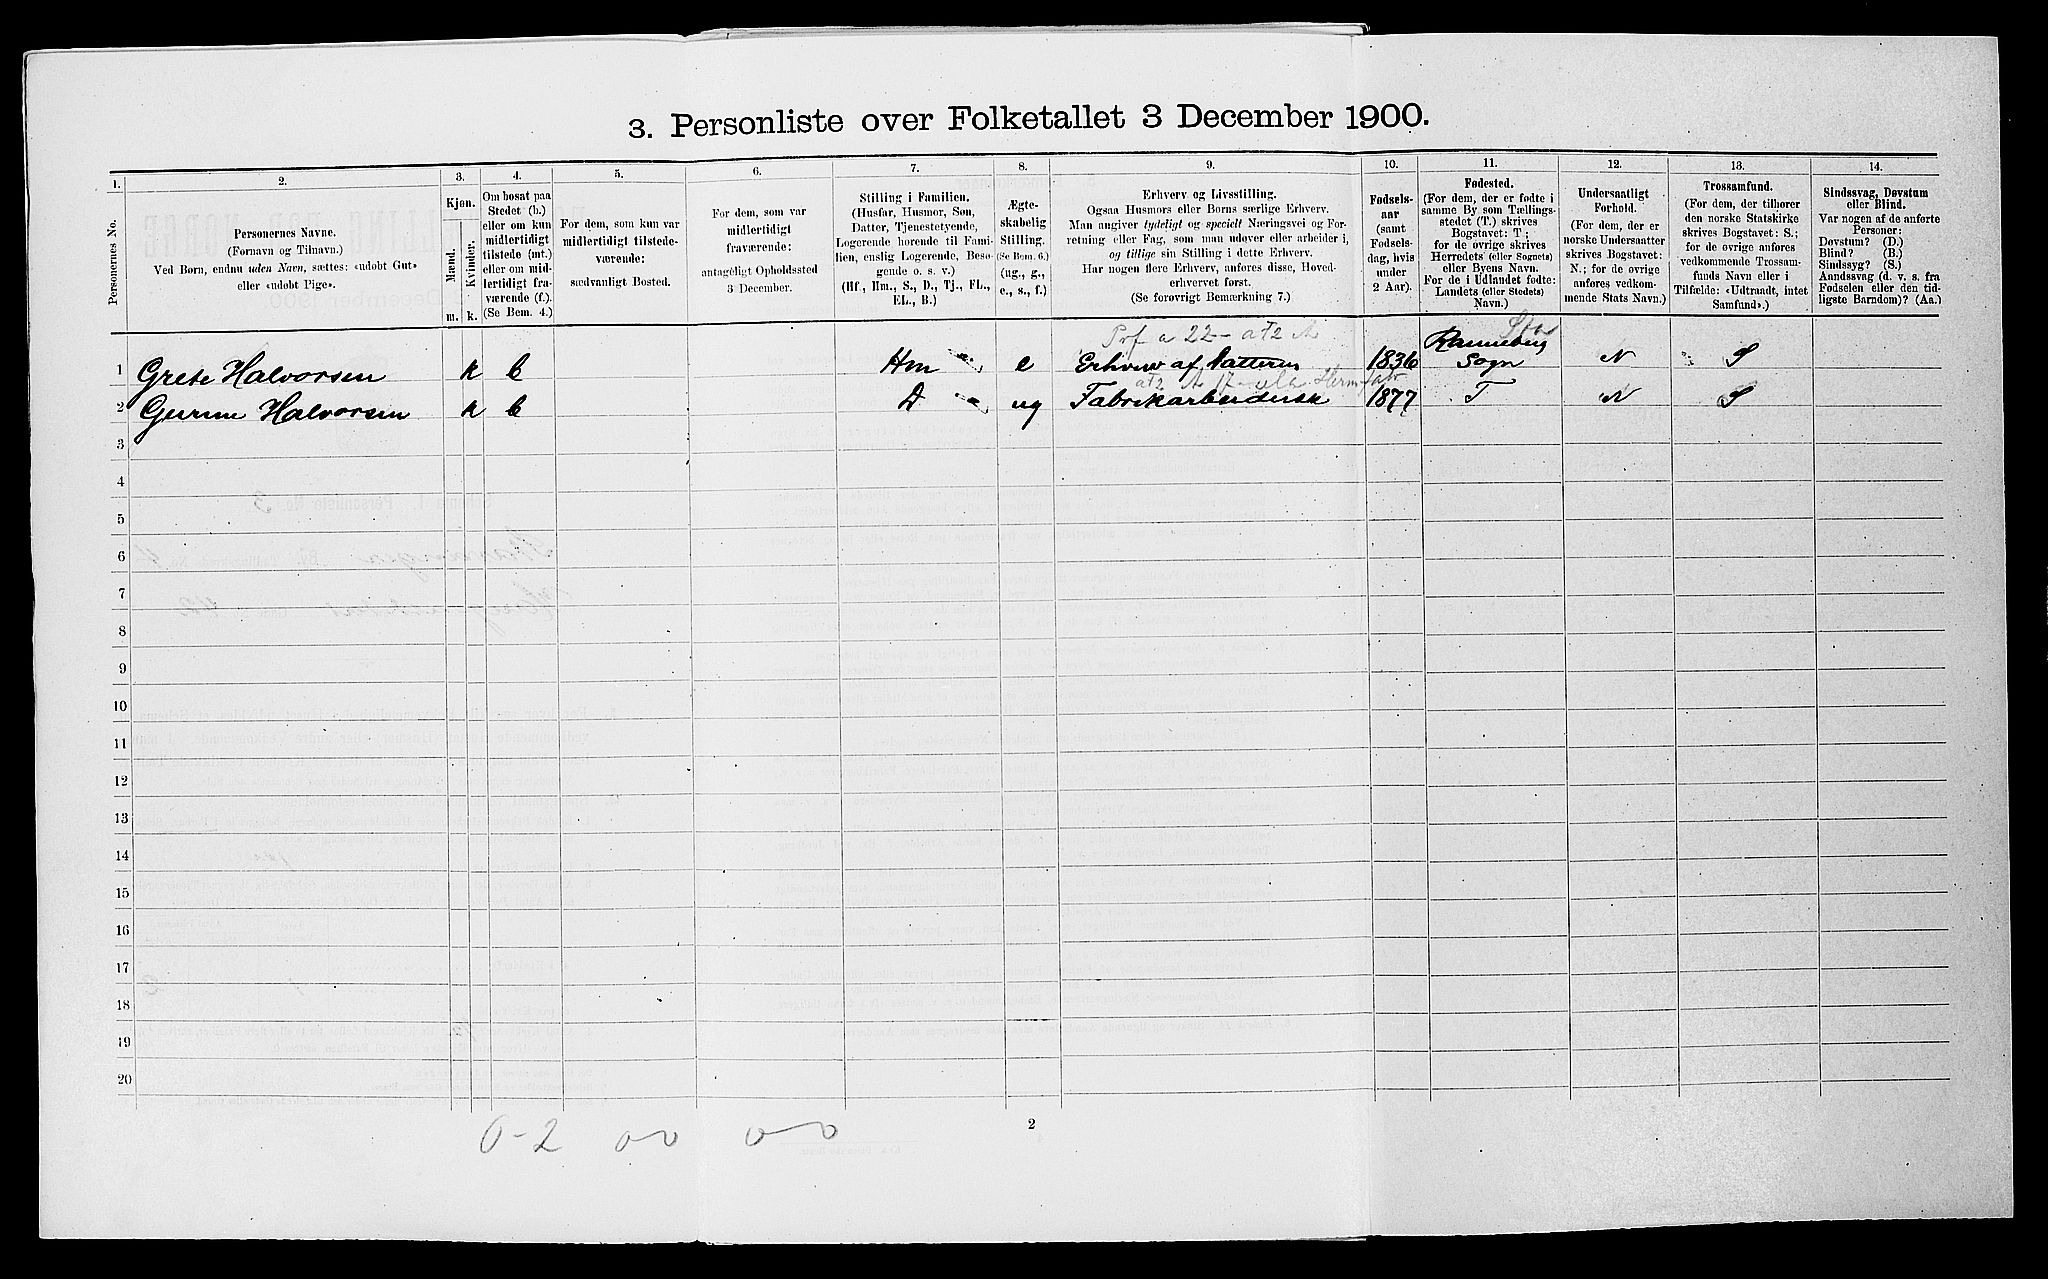 3. Personliste over Folketallet 3 December 1900.
1. 2. 3. 4. 5. 6. 7. 8. 9. 10. 11. 12. 13. 14.
Personernes No.
Personernes Navne.
(Fornavn og Tilnavn.)
Ved Børn, endnu uden Navn, sættes: «udøbt Gut»
eller «udøbt Pige».
Kjøn.
Mænd.
Kvinder.
m. k.
Om bosat paa
Stedet (b.)
eller om kun
midlertidigt
tilstede (mt.)
eller om mid-
lertidigt fra-
værende (f.).
(Se Bem. 4.)
For dem, som kun var
midlertidigt tilstede-
værende:
sædvanligt Bosted.
For dem, som var
midlertidigt
fraværende:
antageligt Opholdssted
3 December.
Stilling i Familien.
(Husfar, Husmor, Søn,
Datter, Tjenestetyende,
Logerende hørende til Fami-
lien, enslig Logerende, Besø-
gende o. s. v.)
(Hf., Hm., S., D., Tj., FL.,
EL., B.)
Ægte-
skabelig
Stilling.
(Se Bem. 6.)
(ug., g.,
e., s., f.)
Erhverv og Livsstilling.
Ogsaa Husmors eller Børns særlige Erhverv.
Man angiver tydeligt og specielt Næringsvei og For-
retning eller Fag, som man udøver eller arbeider i,
og tillige sin Stilling i dette Erhverv.
Har nogen flere Erhverv, anføres disse, Hoved-
erhvervet først.
(Se forøvrigt Bemærkning 7.)
Fødsels-
aar
(samt
Fødsels-
dag, hvis
under
2 Aar).
Fødested.
(For dem, der er fødte i
samme By som Tællings-
stedet (T.) skrives
Bogstavet: T.;
for de øvrige skrives
Herredets (eller Sognets)
eller Byens Navn.
For de i Udlandet fødte:
Landets (eller Stedets)
Navn.)
Undersaatligt
Forhold.
(For dem, der er
norske Undersaatter
skrives Bogstavet:
N.; for de øvrige
anføres vedkom-
mende Stats Navn.)
Trossamfund.
(For dem, der tilhører
den norske Statskirke
skrives Bogstavet: S.;
for de øvrige anføres
vedkommende Trossam-
funds Navn eller i
Tilfælde: «Udtraadt, intet
Samfund».)
Sindssvag, Døvstum
eller Blind.
Var nogen af de anførte
Personer:
Døvstum? (D.)
Blind? (B.)
Sindssyg? (S.)
Aandssvag (d. v. s. fra
Fødselen eller den tid-
ligste Barndom)? (Aa.)
1 Grete Halvorsen k b Hm e Erhverv af Datteren 1836 Ranneberg Sogn N S
2 Gurine Halvorsen k b D ug Fabrikarbeiderske 1877 T N S
3
4
5
6
7
8
9
10
11
12
13
14
15
16
17
18
19
20
0-2 00 00
2